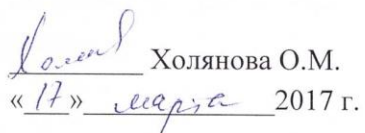 Холянова О.М.
«17» марта 2017 г.